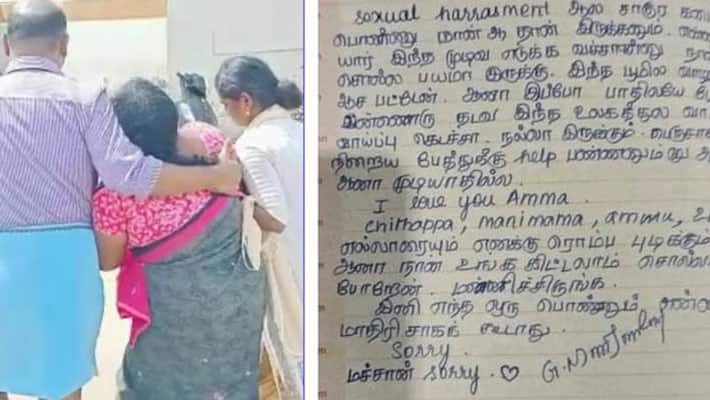 sexual harrasment ஆல சாகுற
பொண்ணு நான் ஆ தான் இருக்கனும்.
யார் இந்த முடிவ எடுக்க வச்சான்னு
சொல்ல பயமா இருக்கு. இந்த பூமில
ஆச பட்டேன். ஆனா இப்போ பாதிலயே
இன்னொரு தடவ இந்த உலகத்துல
வாய்ப்பு கெடச்சா. நல்லா இருக்கும்.
நிறைய பேத்துக்கு help பண்ணனும்னு
ஆனா முடியாதில்ல.
I love you Amma
chithappa, manimama, ammu,
எல்லாரையும் எனக்கு ரொம்ப புடிக்கும்
ஆனா நான் உங்க கிட்டலாம்
போறேன். மன்னிச்சிருங்க.
இனி எந்த ஒரு பொண்ணும்
மாதிரி சாகக் கூடாது.
Sorry.
மச்சான் sorry. ♡